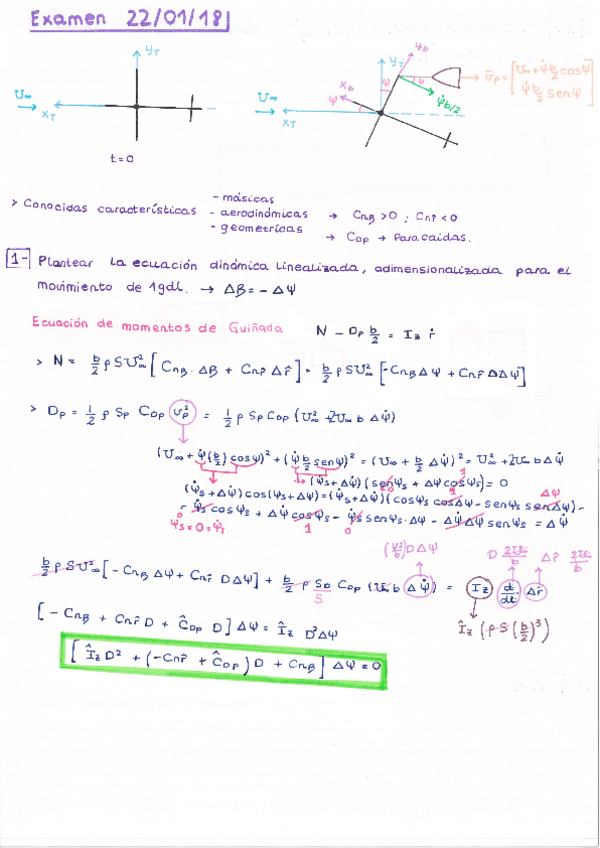 Examen 22/01/18
y_T
U∞
x_T
t=0
y_b
y_T
x_b
ψ
ψ
ψ
U∞
x_T
ψ̇ b/2
ū_p = [U∞ + ψ̇ b/2 cosψ
ψ̇ b/2 senψ]
> Conocidas características
- másicas
- aerodinámicas → Cnβ > 0 ; Cnr̂ < 0
- geometricas
→ C_Dp → Paracaidas.
1- Plantear la ecuación dinámica linealizada, adimensionalizada para el
movimiento de 1gdl. → Δβ = -Δψ
Ecuación de momentos de Guiñada N - Dp b/2 = Iz ṙ
> N = b/2 ρ S U∞² [Cnβ · Δβ + Cnr̂ Δr̂] = b/2 ρ S U∞² [-Cnβ Δψ + Cnr̂ DΔψ]
> Dp = 1/2 ρ Sp C_Dp u_p² = 1/2 ρ Sp C_Dp (U∞² + 2U∞ b Δψ̇)
(U∞ + ψ̇(b/2) cosψ)² + (ψ̇ b/2 senψ)² = (U∞ + b/2 Δψ̇)² = U∞² + 2U∞ b Δψ̇
(ψ̇s + Δψ̇)(senψs + Δψ cosψs) = 0
(ψ̇s + Δψ̇) cos(ψs + Δψ) = (ψ̇s + Δψ̇)(cosψs cosΔψ - senψs senΔψ) -
= ψ̇s cosψs + Δψ̇ cosψs - ψ̇s senψs · Δψ - Δψ̇ Δψ senψs = Δψ̇
ψs = 0 = ψ̇_T
(U∞²/b) DΔψ
D 2U∞/b
Δr̂ 2U∞/b
b/2 ρ S U∞² [-Cnβ Δψ + Cnr̂ DΔψ] + b/2 ρ Sp/S C_Dp (U∞ b Δψ̇) = Iz d/dt Δr
[-Cnβ + Cnr̂ D + Ĉ_Dp D] Δψ = Îz D²Δψ
Îz (ρ S (b/2)³)
[Îz D² + (-Cnr̂ + Ĉ_Dp) D + Cnβ] Δψ = 0